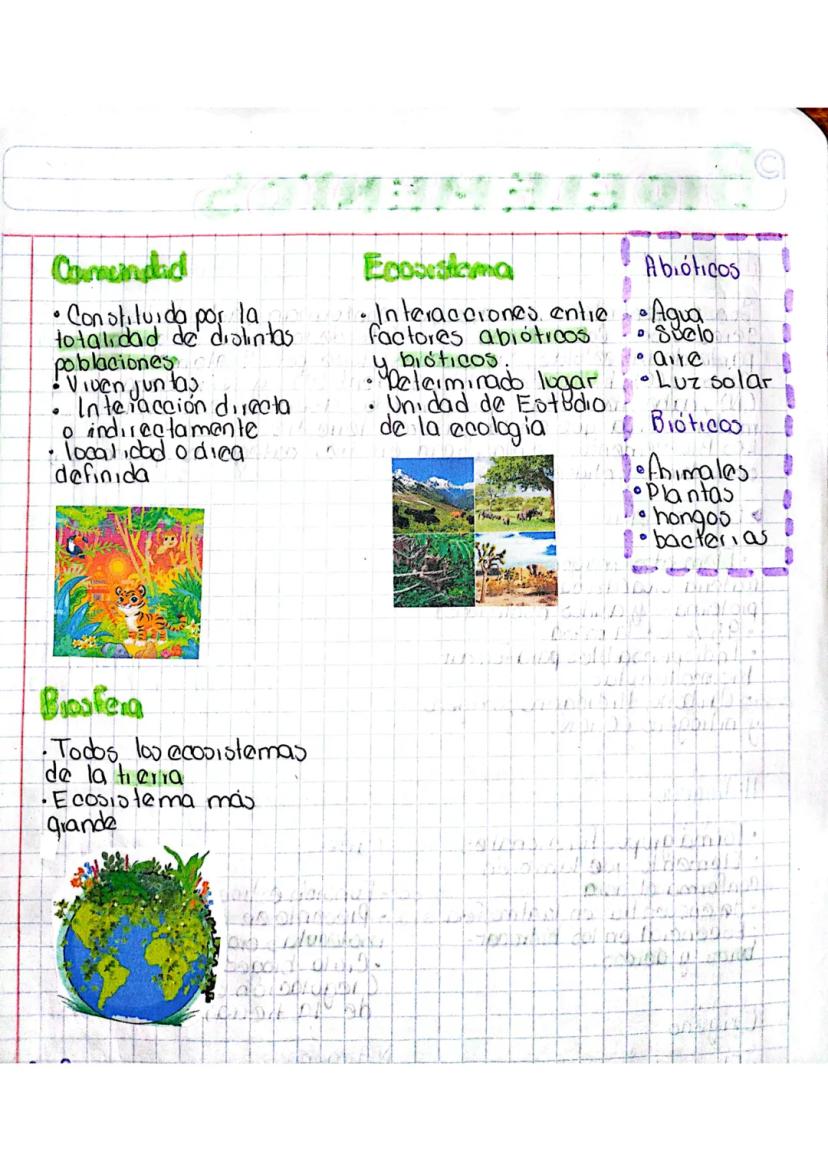 Comunidad
• Constituida por la
totalidad de distintas
poblaciones
• Viven juntas
• Interacción directa
o indirectamente
• localidad o área
definida
Ecosistema
• Interacciones entre
factores abióticos
y bióticos.
• Determinado lugar
• Unidad de Estudio
de la ecología
Abióticos
• Agua
• Suelo
• aire
• Luz solar
Bióticos
• Animales
• Plantas
• hongos
• bacterias
Biosfera
• Todos los ecosistemas
de la tierra
• Ecosistema más
grande